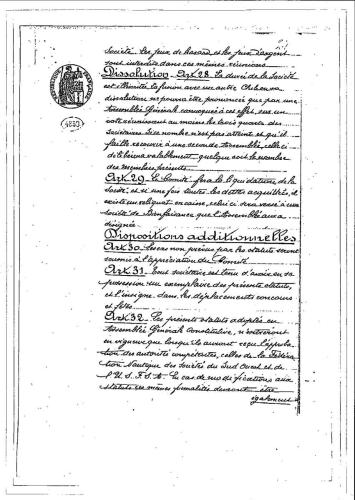 Société. Les jeux de hasard et les jeux d'argent
sont interdits dans ces mêmes réunions
Dissolution - Art 28 - La durée de la Société
est illimitée, la fusion avec un autre Club ou sa
dissolution ne pourra être prononcée que par une
Assemblée Générale convoquée à cet effet, sur un
vote réunissant au moins les trois quarts des
sociétaires. Si ce nombre n'est pas atteint et qu'il
faille recourir à une seconde Assemblée, celle-ci
délibérera valablement, quelque soit le nombre
des membres présents.
Art 29 - Le Comité fera la liquidation de la
Société, et si une fois toutes les dettes acquittées, il
existe un reliquat en caisse, celui-ci sera versé à une
Société de Bienfaisance que l'Assemblée aura
désignée.
Dispositions additionnelles
Art 30 - Les cas non prévus par les statuts seront
soumis à l'appréciation du Comité
Art 31 - Tout sociétaire est tenu d'avoir en sa
possession un exemplaire des présents statuts,
et l'insigne, dans les déplacements concours
et fêtes.
Art 32 - Les présents statuts adoptés en
Assemblée Générale Constitutive, n'entreront
en vigueur que lorsqu'ils auront reçu l'approba
tion des autorités compétentes, celles de la Fédéra
tion Nautique des Sociétés du Sud Ouest et de
l'U.S.F.S.A. En cas de modifications aux
statuts ces mêmes formalités devront être
également